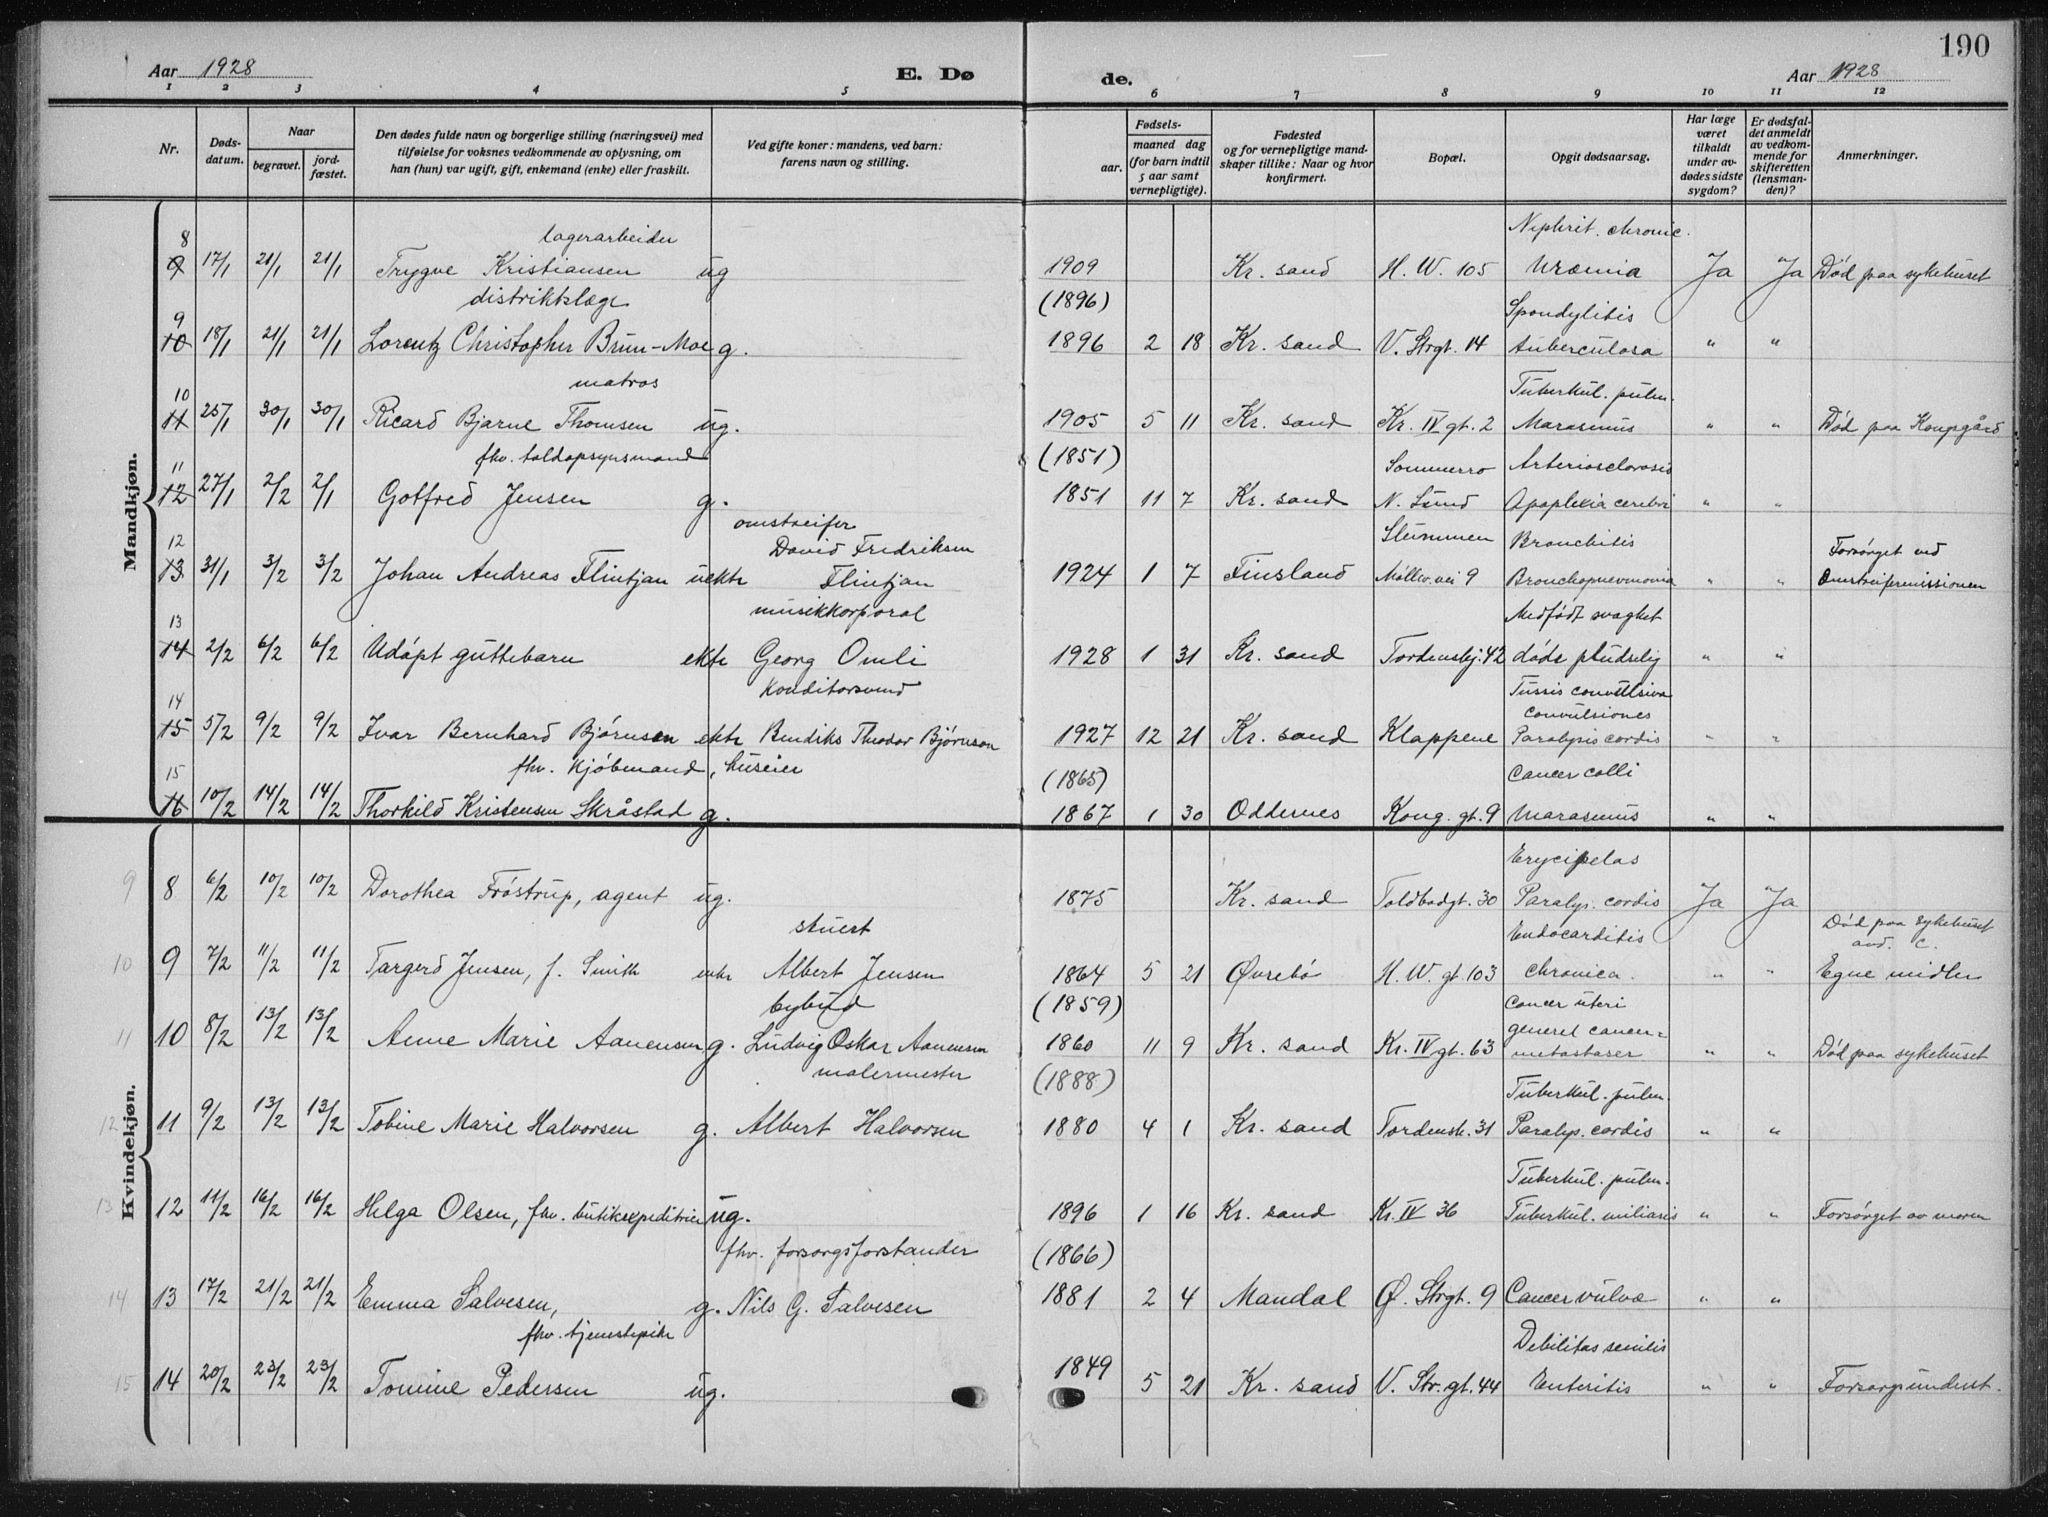 190
Aar 1928 E. Dø de. Aar 1928
1 2 3 4 5 6 7 8 9 10 11 12
Nr. Dødsdatum. Naar begravet. jordfæstet. Den dødes fulde navn og borgerlige stilling (næringsvei) med tilføielse for voksnes vedkommende av oplysning, om han (hun) var ugift, gift, enkemand (enke) eller fraskilt. Ved gifte koner: mandens, ved barn: farens navn og stilling. Fødsels- aar. maaned dag (for barn indtil 5 aar samt vernepligtige). Fødested og for vernepligtige mandskaper tillike: Naar og hvor konfirmert. Bopæl. Opgit dødsaarsag. Har læge været tilkaldt under avdødes sidste sygdom? Er dødsfaldet anmeldt av vedkommende for skifteretten (lensmanden)? Anmerkninger.
Mandkjøn.
8 lagerarbeider Nephrit. chronic.
9 17/1 21/1 21/1 Trygve Kristiansen ug 1909 Kr. sand H. W. 105 Uræmia Ja Ja Død paa sykehuset
distriktslæge (1896) Spondylitis
9
10 18/1 21/1 21/1 Lorentz Christopher Brun-Moe g. 1896 2 18 Kr. sand V. Strgt. 14 tuberculosa " "
10 matros Tuberkul. pulm.
11 25/1 30/1 30/1 Ricard Bjarne Thomsen ug. 1905 5 11 Kr. sand Kr. IV gt. 2 Marasmus " " Død paa Kongsgård
11 fhv. toldopsynsmand (1851) Sommerro Arteriosclerosis
12 27/1 2/2 2/1 Gotfred Jensen g. 1851 11 7 Kr. sand N. Lund Apoplexia cerebri " "
12 omstreifer David Fredriksen Slummen Bronchitis Forsørget ved
13 31/1 3/2 3/2 Johan Andreas Flintjan uekte Flintjan 1924 1 7 Finsland Møllev.vei 9 Bronchopneumonia " " Omstreifermissionen
13 musikkorporal Medfødt svaghet
14 2/2 6/2 6/2 Udøpt guttebarn ekte Georg Omli 1928 1 31 Kr. sand Tordenskj. 42 døde pludselig " "
14 Konditorsvend Tussis convulsiva Convulsiones
15 5/2 9/2 9/2 Ivar Bernhard Bjørnsen ekte Bendiks Theodor Bjørnson 1927 12 21 Kr. sand Klappene Paralysis cordis " "
15 fhv. kjøbmand, huseier (1865) Cancer colli
16 10/2 14/2 14/2 Thorkild Kristensen Skråstad g. 1867 1 30 Oddernes Kong. gt. 9 Marasmus " "
Kvindekjøn.
Erycipelas
9 8 6/2 10/2 10/2 Dorothea Frøstrup, agent ug. 1875 Kr. sand Toldbodgt. 30 Paralys. cordis Ja Ja
stuert Endocarditis Død paa sykehuset avd. C.
10 9 7/2 11/2 11/2 Targerd Jensen, f. Smith enke Albert Jensen 1864 5 21 Øvrebø H. W. gt. 103 chronica. " " Egne midler
bybud (1859) Cancer uteri
11 10 8/2 13/2 13/2 Anne Marie Aanensen g. Ludvig Oskar Aanensen 1860 11 9 Kr. sand Kr. IV gt. 63 generel cancer=metastaser " " Død paa sykehuset
malermester (1888) Tuberkul. pulm.
12 11 9/2 13/2 13/2 Tobine Marie Halvorsen g. Albert Halvorsen 1880 4 1 Kr. sand Tordensk. 31 Paralys. cordis " "
Tuberkul. pulm.
13 12 11/2 16/2 16/2 Helga Olsen, fhv. butikexpeditrice ug. 1896 1 16 Kr. sand Kr. IV 36 Tuberkul. miliaris " " Forsørget av moren
fhv. forsorgsforstander (1866)
14 13 17/2 21/2 21/2 Emma Salvesen, g. Nils G. Salvesen 1881 2 4 Mandal Ø. Strgt. 9 Cancer vulvæ " "
fhv. tjenestepike Debilitas senilis
15 14 20/2 23/2 23/2 Tomine Pedersen ug. 1849 5 21 Kr. sand V. Str. gt. 44 Enteritis " " Forsorgsunderst.